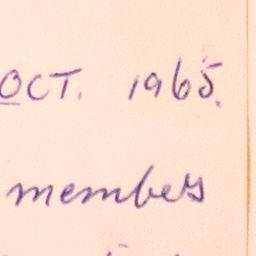 OCT. 1965.
members